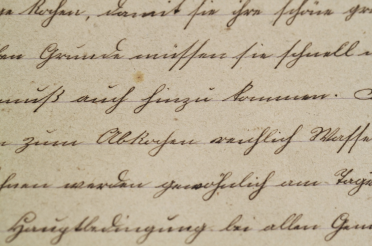 kochen, damit sie ihre schöne
Grunde müssen sie schnell
muß auch hinzu kommen.
zum Abkochen reichlich Wasse
hnen werden gewöhnlich am Tage
Hauptbedingung bei allen Gem